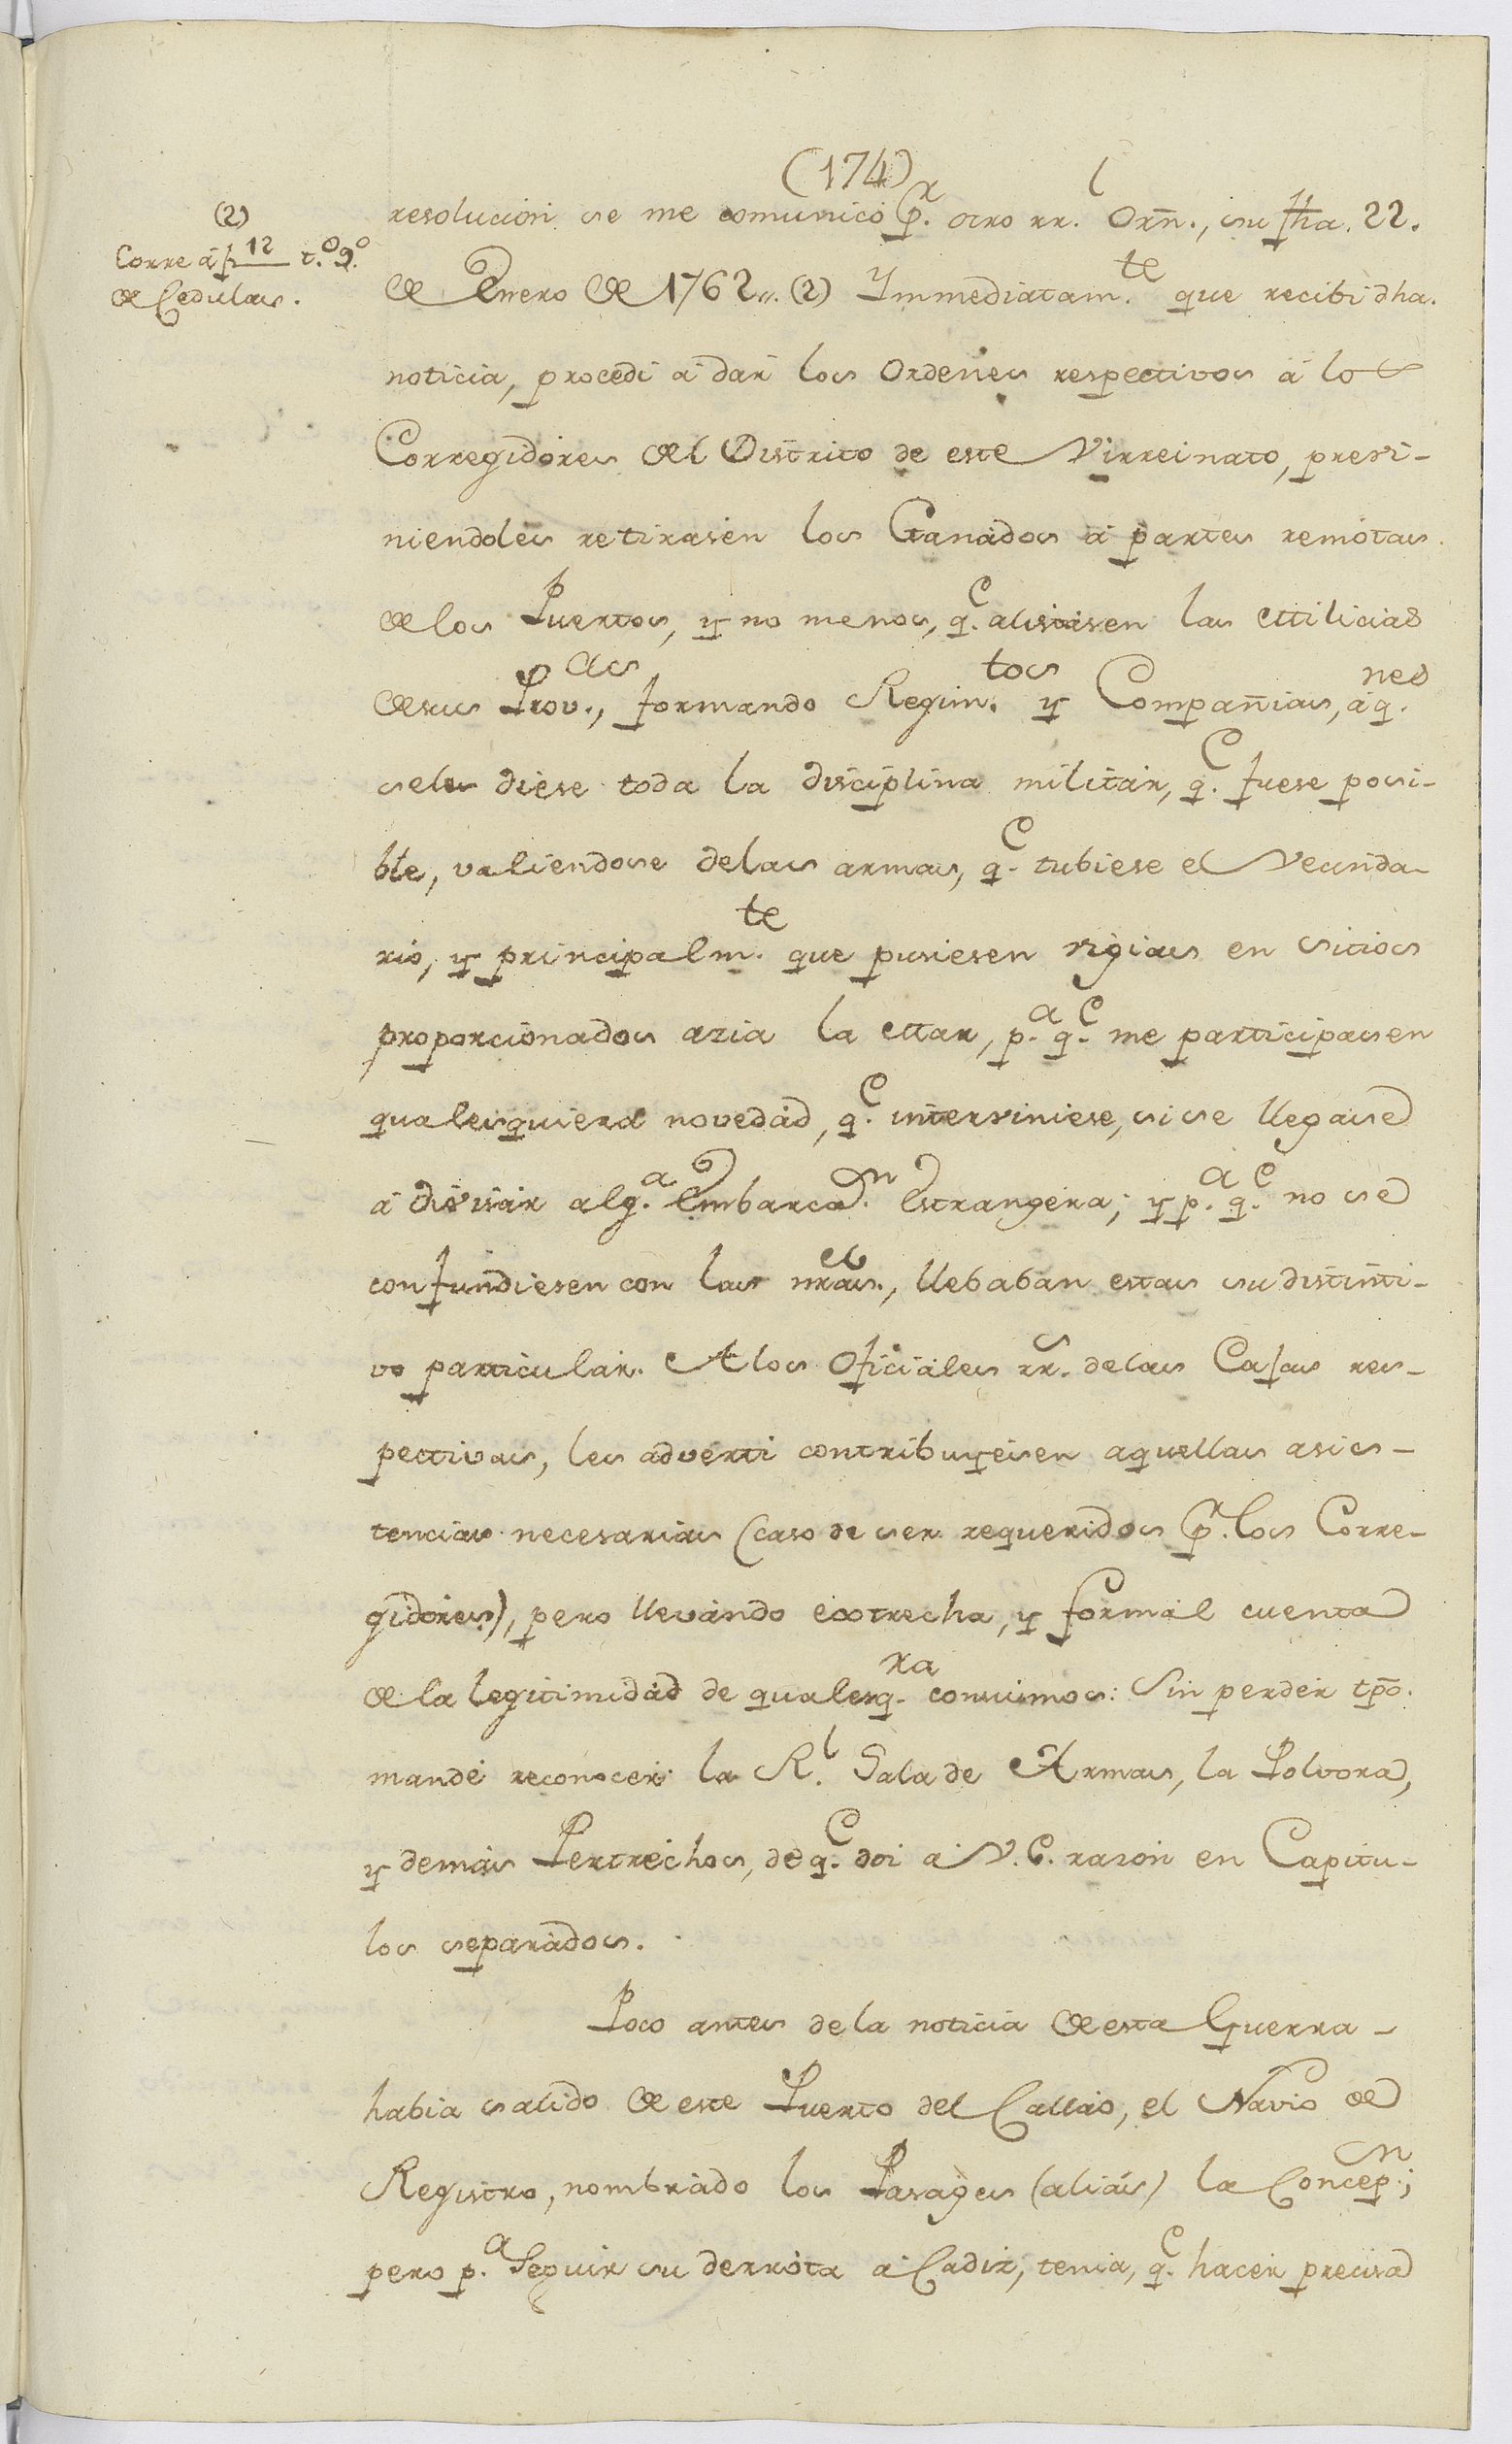 (174)
(2)
Corre á f 12 t.º 9.º
de Cedulas.
resolucion se me comunicó p.r otro rr.l Orñ., su fha. 22.
de Enero de 1762,,. (2) Immediatam.te que recibi dha.
noticia, procedi á dar los Ordenes respectivos á los
Corregidores del Distrito de este Virreinato, previ-
niendoles retirasen los Ganados á partes remotas
de los Puertos, y no menos, q.e alistasen las Milicias
desus Prov.as, formando Regim.tos y Compañias, áq.nes
seles diese toda la disciplina militar, q.e fuese posi-
ble, valiendose delas armas, q.e tubiese el Vecinda-
rio, y principalm.te que pusiesen vigias en sitios
proporcionados azia la Mar, p.a q.e me participasen
qualesquiera novedad, q.e interviniese, si se llegase
á divisar alg.a Embarca.on Estrangera; y p.a q.e no se
confundiesen con las nras., llebaban estas su distinti-
vo particular. A los Oficiales rr.s delas Cajas res-
pectivas, les adverti contribuyesen aquellas asis-
tencias necesarias (caso de ser requeridos p.r los Corre-
gidores), pero llevando extrecha, y formal cuenta
de la legitimidad de qualesq.ra consumos: Sin perder tpõ.
mandé reconocer la R.l Sala de Armas, la Polvora,
y demás Pertrechos, de q.e doi a V. E. razon en Capitu-
los separados.
Poco antes de la noticia de esta Guerra
habia salido de este Puerto del Callao, el Navio de
Registro, nombrado los Pasages (aliás) la Concep.on;
pero p.a seguir su derrota á Cadiz, tenia, q.e hacer precisa